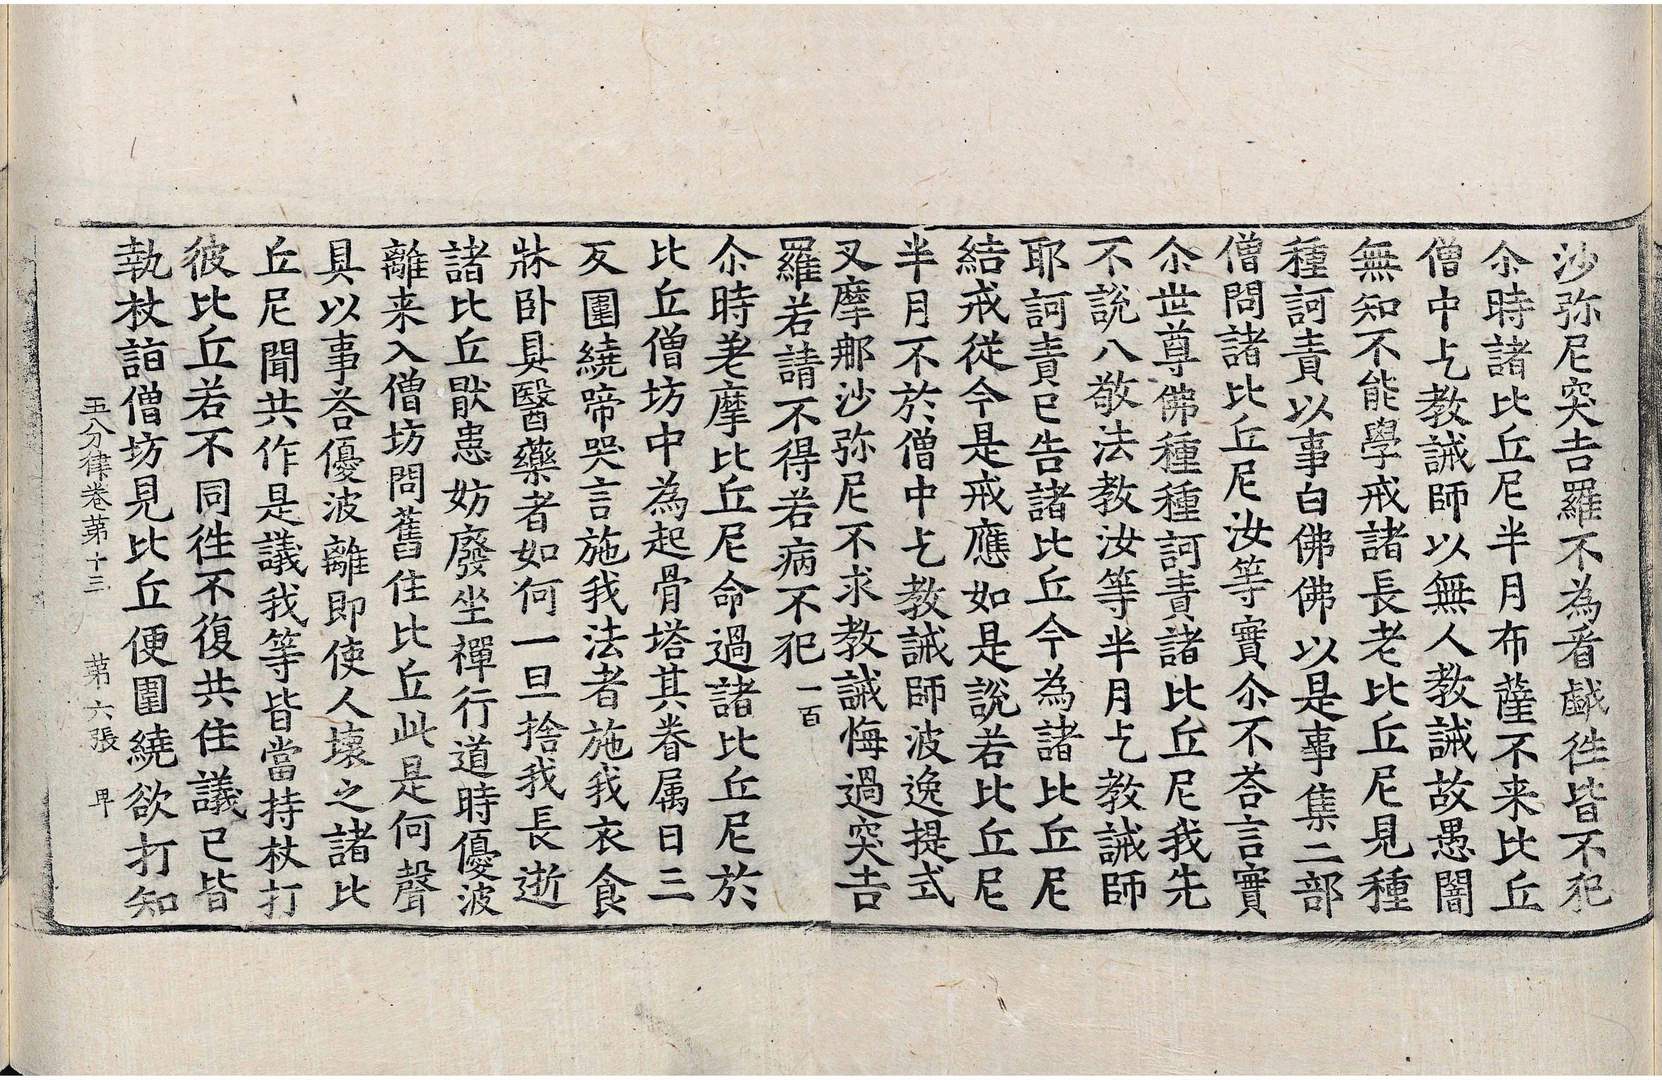 沙弥尼突吉羅不為看戱徃皆不犯
尒時諸比丘尼半月布薩不来比丘
僧中乞教誡師以無人教誡故愚闇
無知不能學戒諸長老比丘尼見種
種訶責以事白佛佛以是事集二部
僧問諸比丘尼汝等實尒不荅言實
尒世尊佛種種訶責諸比丘尼我先
不說八敬法教汝等半月乞教誡師
耶訶責已告諸比丘今為諸比丘尼
結戒從今是戒應如是說若比丘尼
半月不於僧中乞教誡師波逸提式
叉摩那沙弥尼不求教誡悔過突吉
羅若請不得若病不犯 一百
尒時差摩比丘尼命過諸比丘尼於
比丘僧坊中為起骨塔其眷属日三
反圍繞啼哭言施我法者施我衣食
牀卧具醫藥者如何一旦捨我長逝
諸比丘猒患妨廢坐禪行道時優波
離来入僧坊問舊住比丘此是何聲
具以事荅優波離即使人壞之諸比
丘尼聞共作是議我等皆當持杖打
彼比丘若不同徃不復共住議已皆
執杖詣僧坊見比丘便圍繞欲打知
五分律卷苐十三 苐六張 卑